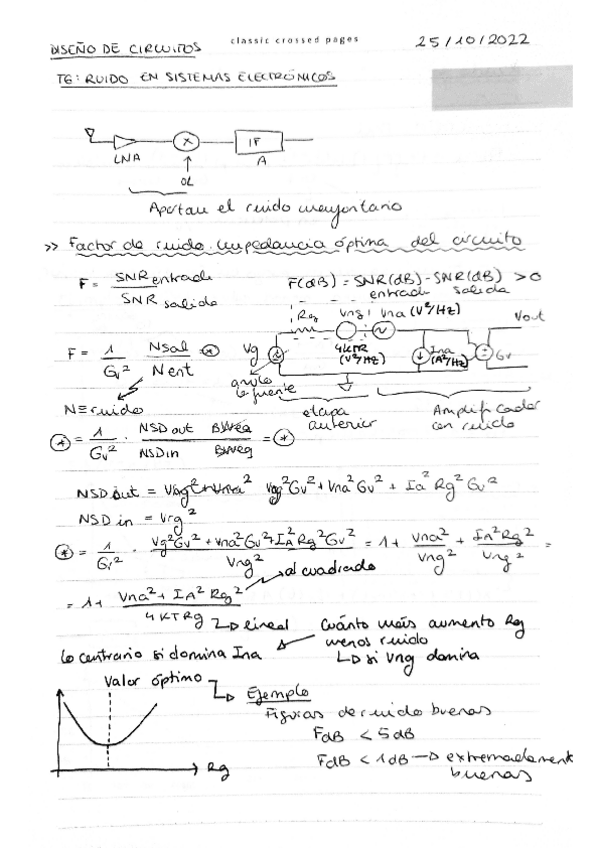 DISEÑO DE CIRCUITOS classic crossed pages 25/10/2022
T6: RUIDO EN SISTEMAS ELECTRÓNICOS
LNA X IF
A
OL
Aportan el ruido mayoritario
>> Factor de ruido. Impedancia óptima del circuito
F = SNR entrada / SNR salida
F(dB) = SNR(dB) entrada - SNR(dB) salida > 0
Rg Vng Vna (V²/Hz) Vout
F = 1/Gv² Nsal/Nent ⊛
Vg 4kTR (V²/Hz) Ina (A²/Hz) Gv
N≡ruido
etapa anterior
Amplificador con ruido
⊛ = 1/Gv² · NSDout BWeq / NSDin BWeq = ⊛
NSD out = Vng²Gv² + Vna²Gv² + Ia²Rg²Gv²
NSD in = Vrg²
⊛ = 1/Gv² · Vg²Gv² + Vna²Gv² + IA²Rg²Gv² / Vng² = 1 + Vna²/Vng² + IA²Rg²/Vng² =
al cuadrado
= 1 + Vna² + IA² Rg² / 4KTRg
lineal
Cuánto más aumento Rg
menos ruido
si Vng domina
lo contrario si domina Ina
Valor óptimo
Ejemplo
Figuras de ruido buenas
FdB < 5dB
FdB < 1dB → extremadament
buenas
Rg